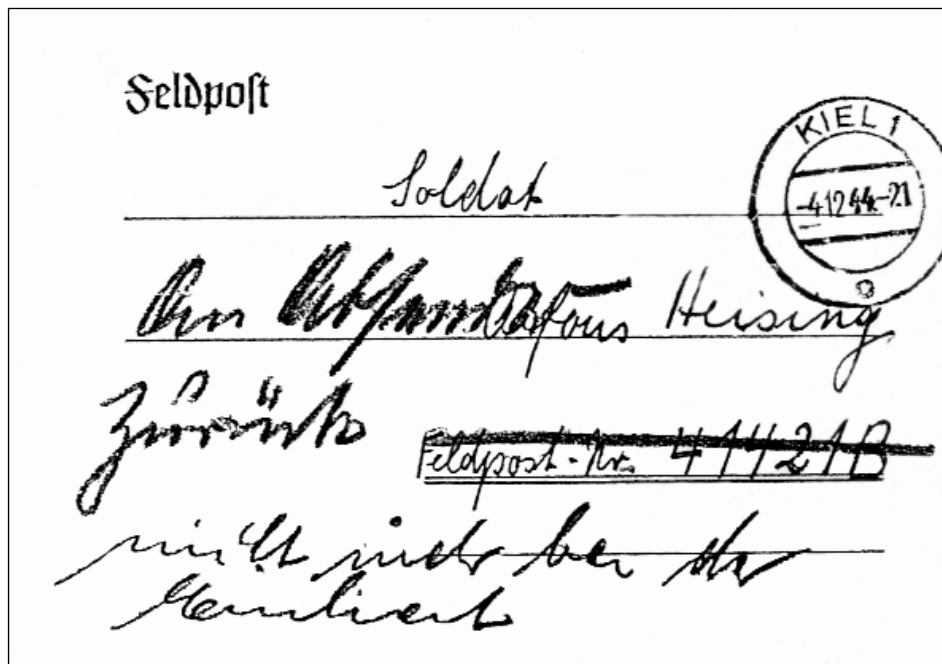 Feldpost
KIEL 1
-4.12.44.-21
Soldat
An Absender Alfons Heising
zurück
Feldpost-Nr. 41421B
nicht mehr bei der
Einheit